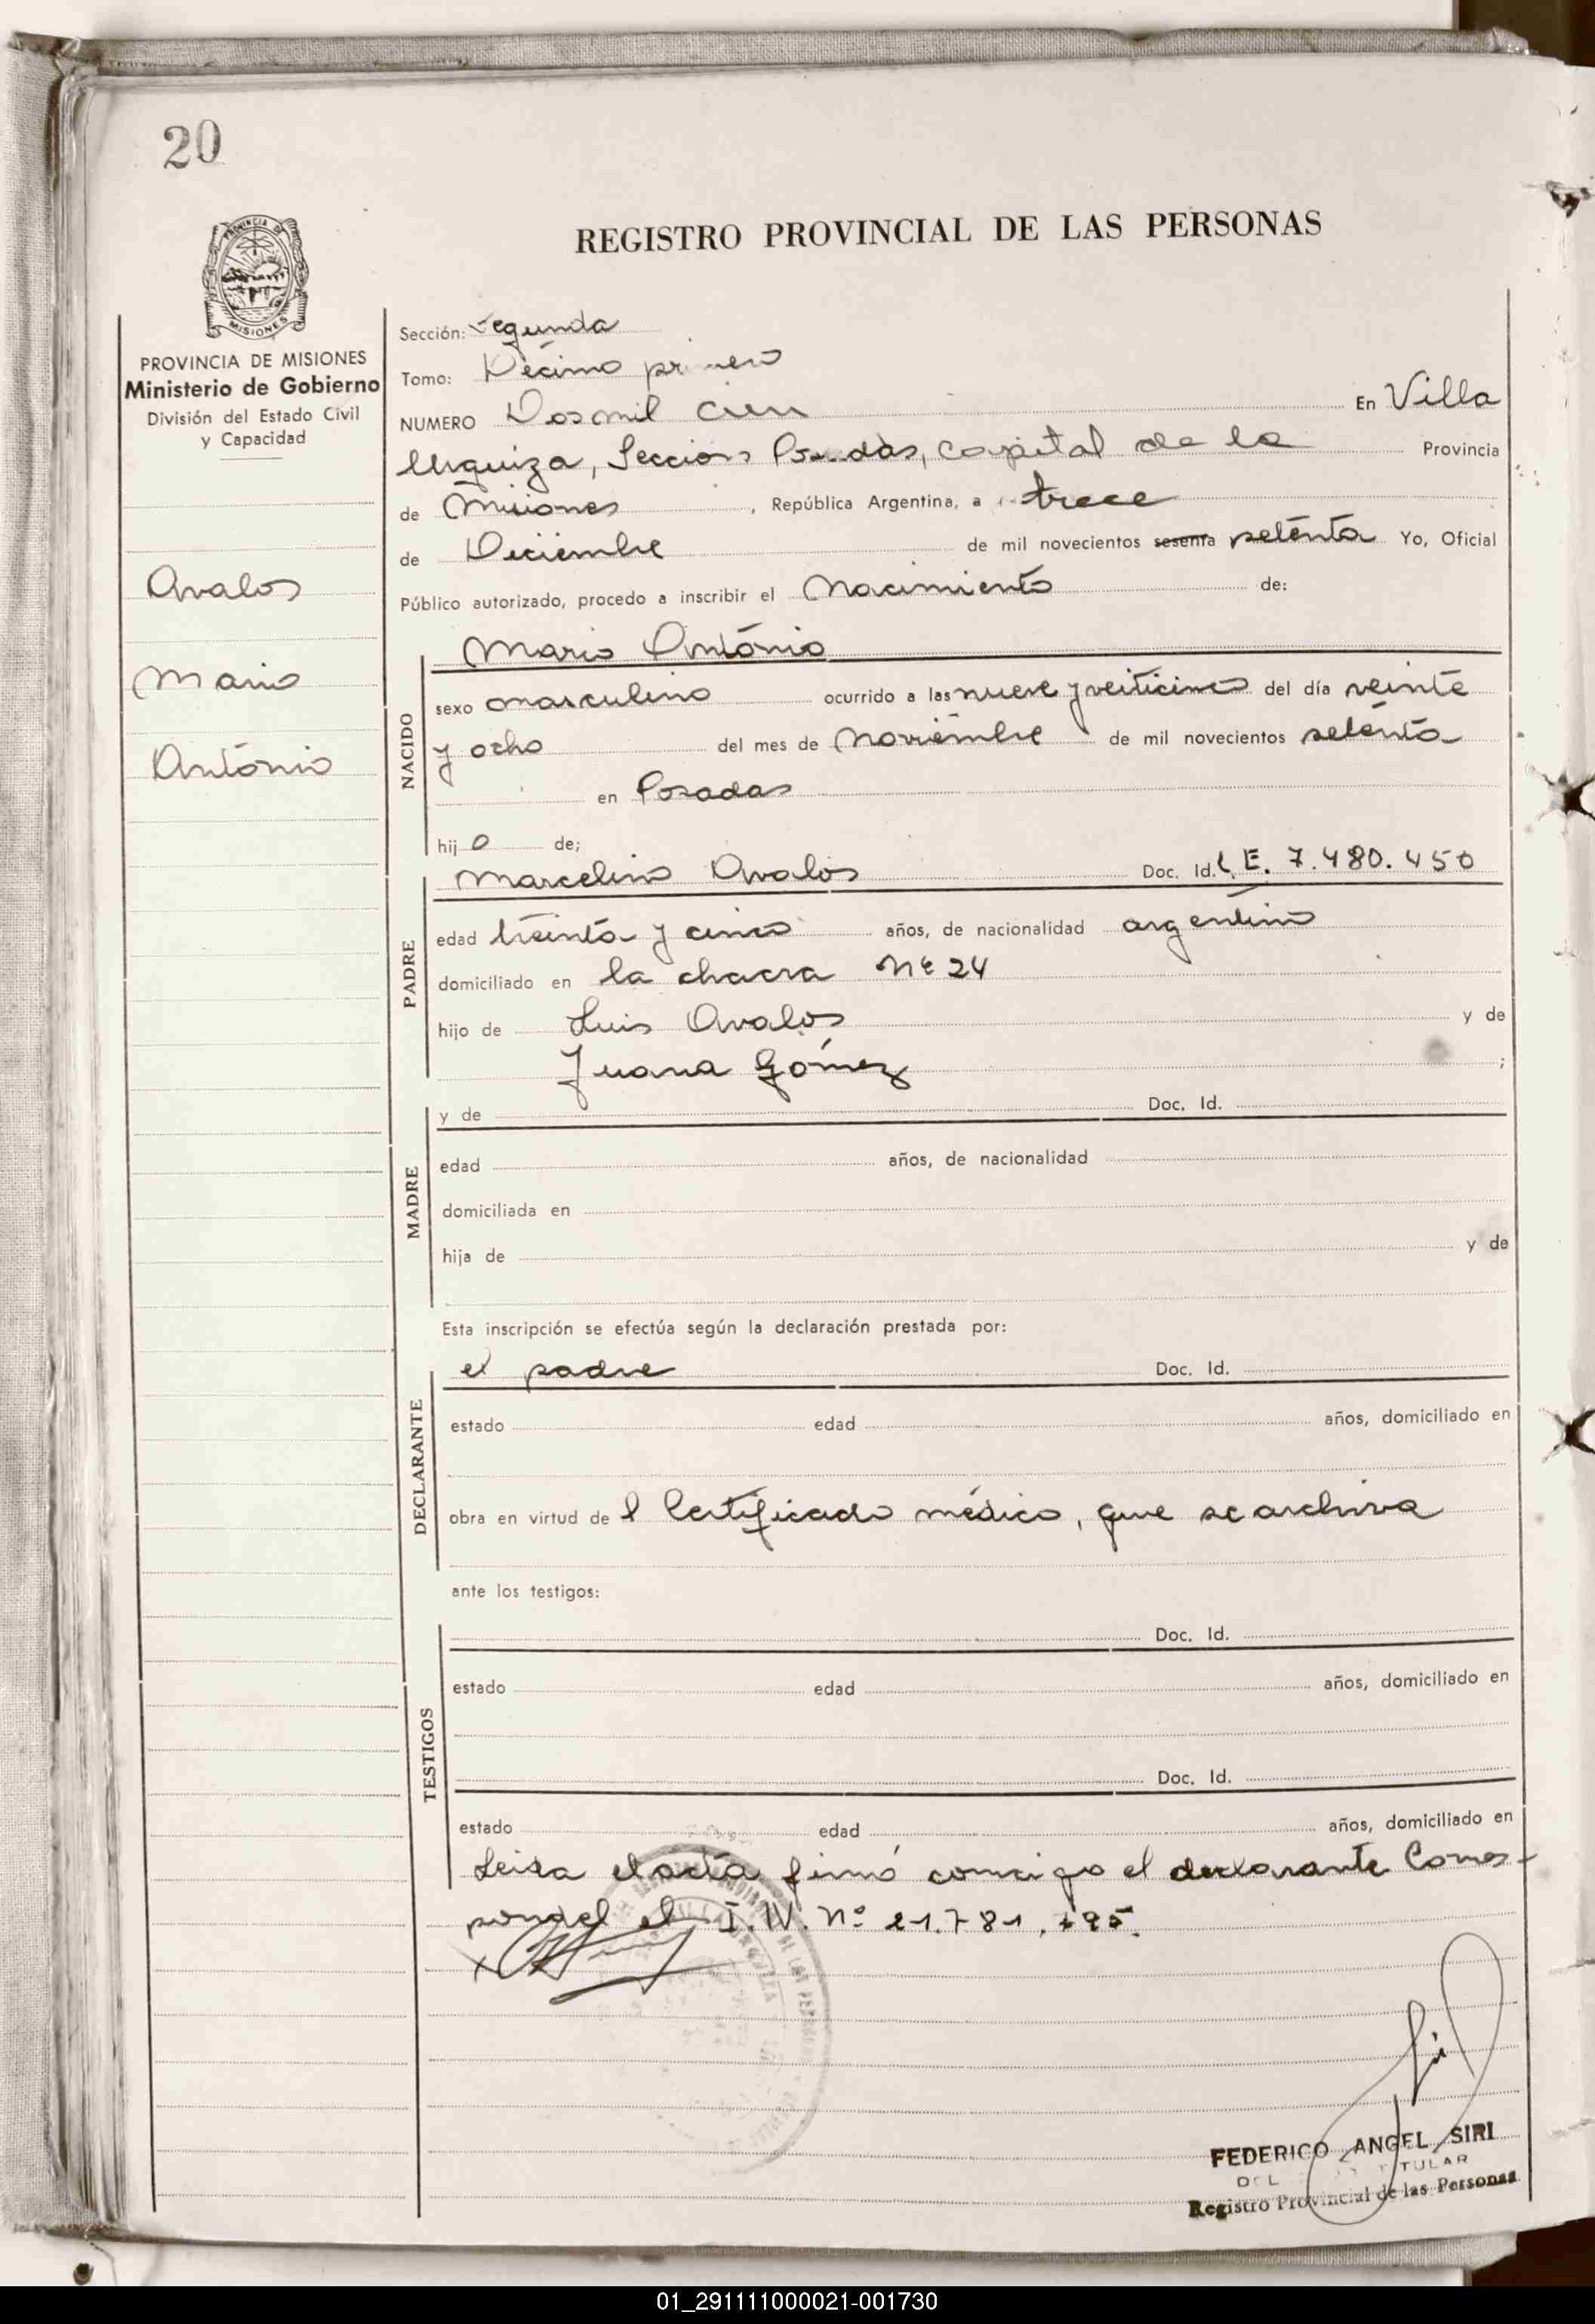 20
REGISTRO PROVINCIAL DE LAS PERSONAS
PROVINCIA DE
MISIONES
PROVINCIA DE MISIONES
Ministerio de Gobierno
División del Estado Civil
y Capacidad
Avalos
Mario
António
Sección: Segunda
Tomo: Décimo primero
NUMERO Dos mil cien En Villa
Urquiza, Seccion Posadas, capital de la Provincia
de Misiones, República Argentina, a trece
de Diciembre de mil novecientos sesenta setenta Yo, Oficial
Público autorizado, procedo a inscribir el Nacimiento de:
NACIDO
Mario António
sexo masculino ocurrido a las nueve y veiticinco del día veinte
y ocho del mes de Noviembre de mil novecientos setenta
en Posadas
hijo de;
PADRE
Marcelino Avalos Doc. Id. L.E. 7.480.450
edad treinta y cinco años, de nacionalidad argentino
domiciliado en la chacra Nº 24
hijo de Luis Avalos y de
Juana Gómez ;
MADRE
y de Doc. Id.
edad años, de nacionalidad
domiciliada en
hija de y de
Esta inscripción se efectúa según la declaración prestada por:
DECLARANTE
el padre Doc. Id.
estado edad años, domiciliado en
obra en virtud de l Certificado médico, que se archiva
ante los testigos:
TESTIGOS
Doc. Id.
estado edad años, domiciliado en
Doc. Id.
estado edad años, domiciliado en
Leida el acta firmó conmigo el declarante Corres-
ponde el I.N. Nº 21.781.195.
FEDERICO ANGEL SIRI
Registro Provincial de las Personas
01_291111000021-001730